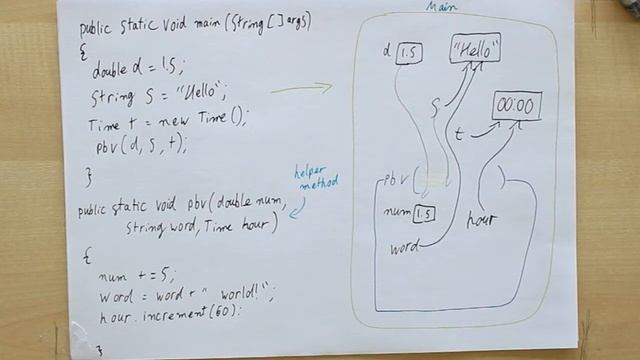 public static void main (String [] args)
{
double d = 1.5;
String S = "Hello";
Time t = new Time ();
pbv (d, s, t);
}
helper
method
public static void pbv (double num,
String word, Time hour)
{
num += 5;
word = word + " world!";
hour. increment (60):
}
Main
d 1.5
"Hello"
S
00:00
t
pbv ( )
num 1.5
word
hour